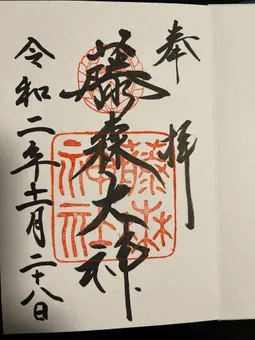 奉拝
藤森大神
藤森神社
令和二年十一月二十八日